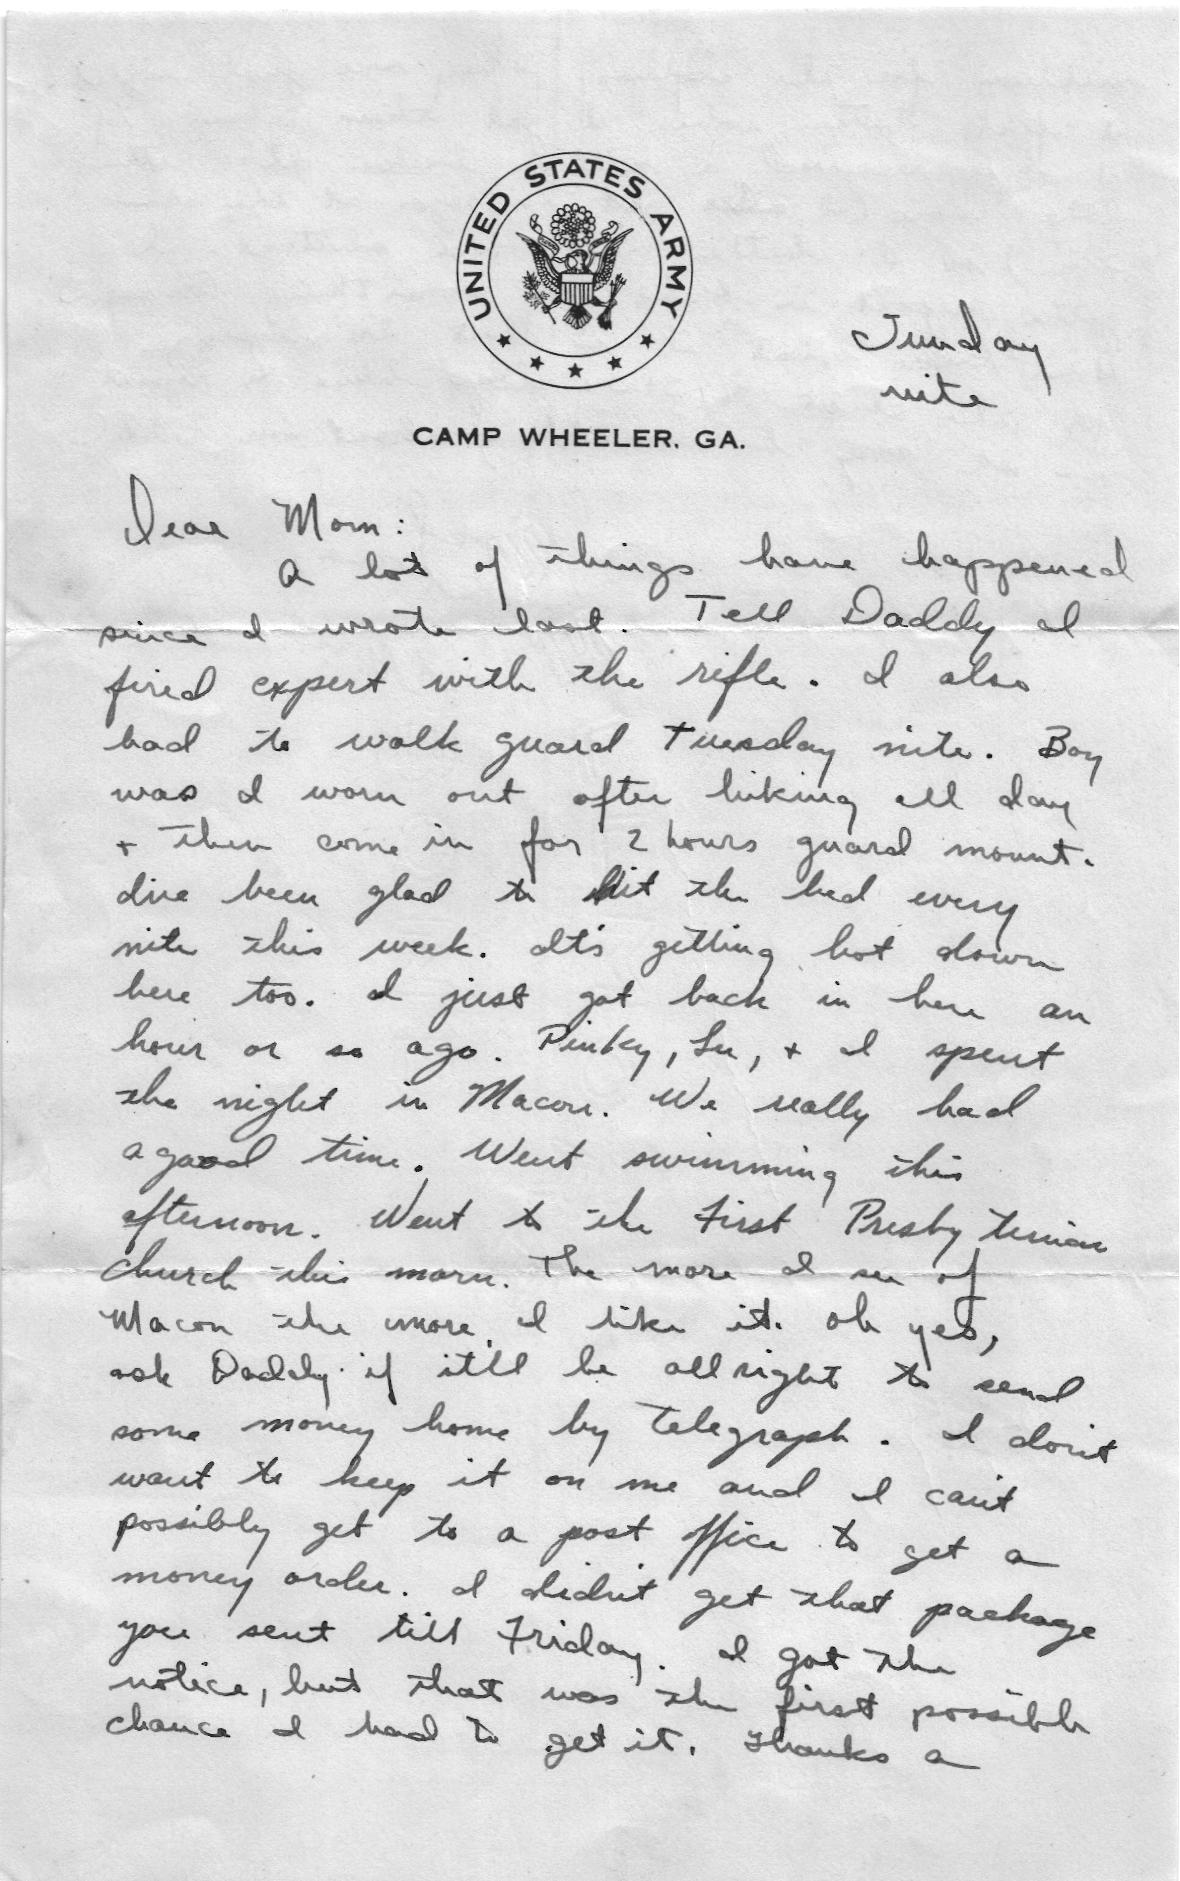 UNITED STATES ARMY
Sunday
nite
CAMP WHEELER, GA.
Dear Mom:
A lot of things have happened
since I wrote last. Tell Daddy I
fired expert with the rifle. I also
had to walk guard Tuesday nite. Boy
was I worn out after hiking all day
+ then come in for 2 hours guard mount.
I've been glad to hit the bed every
nite this week. It's getting hot down
here too. I just got back in here an
hour or so ago. Pinky, Lu, + I spent
the night in Macon. We really had
a good time. Went swimming this
afternoon. Went to the First Presbyterian
church this morn. The more I see of
Macon the more I like it. Oh yes,
ask Daddy if it'll be allright to send
some money home by telegraph. I don't
want to keep it on me and I can't
possibly get to a post office to get a
money order. I didn't get that package
you sent till Friday. I got the
notice, but that was the first possible
chance I had to get it. Thanks a